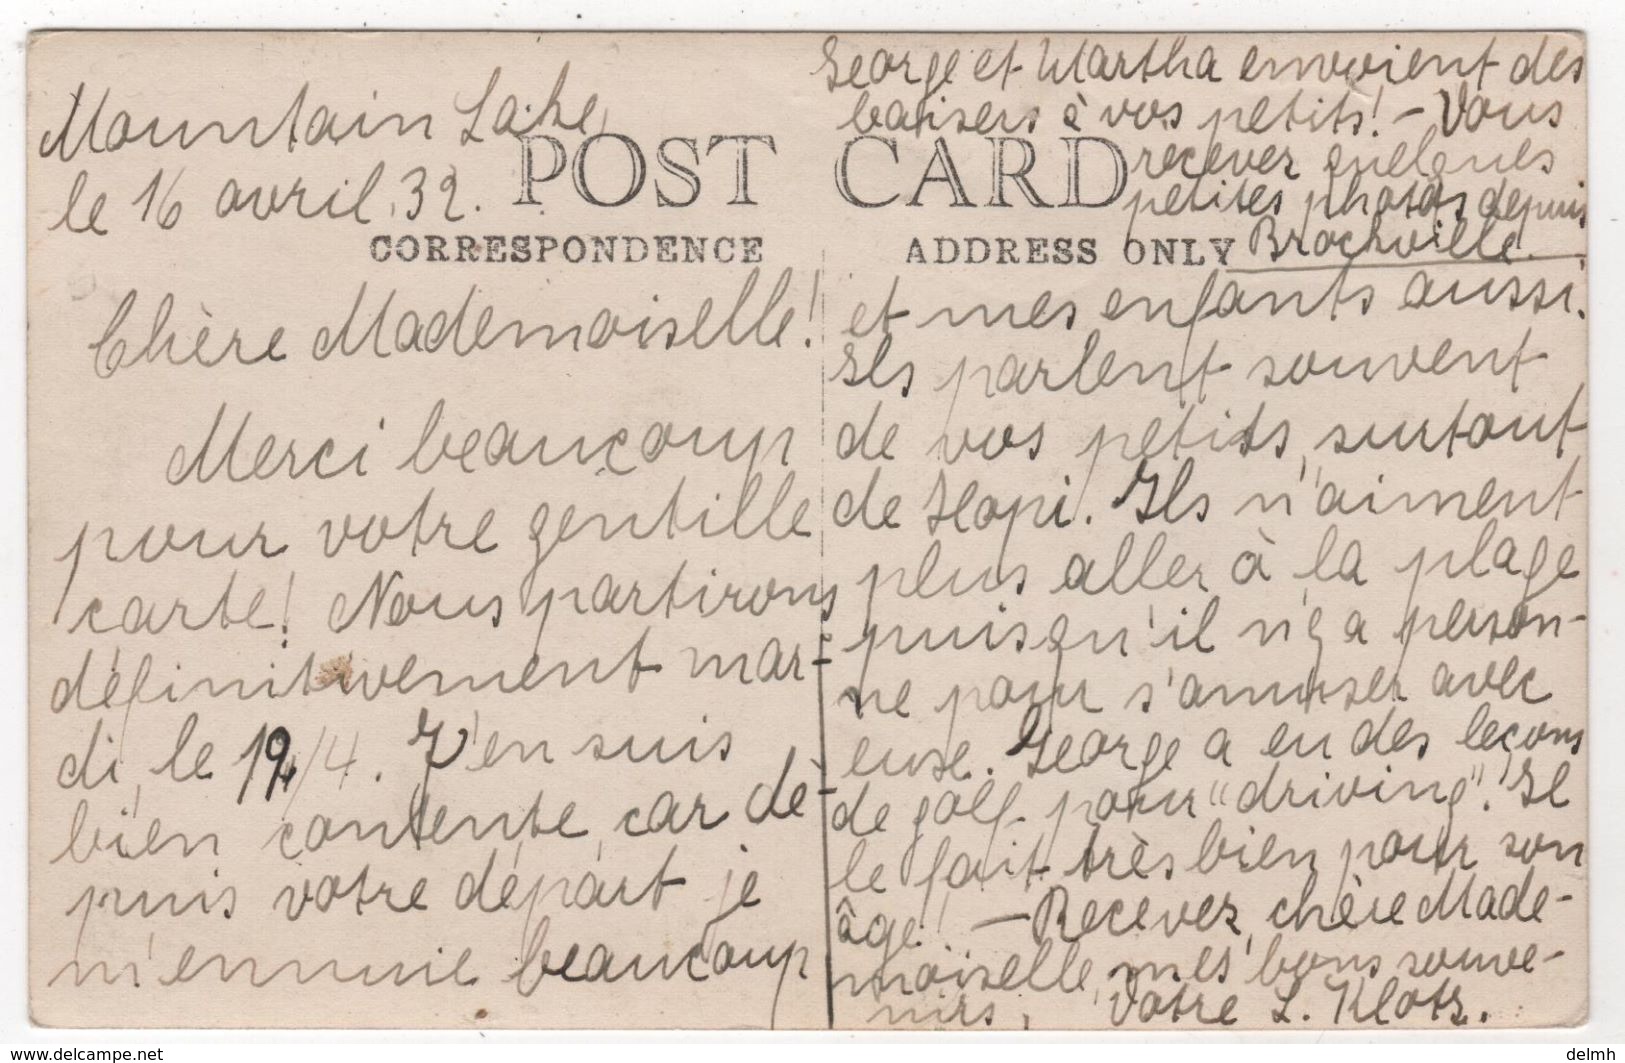 Mountain Lake,
le 16 avril 32.
POST CARD
CORRESPONDENCE
ADDRESS ONLY
Chère Mademoiselle!
Merci beaucoup
pour votre gentille
carte! Nous partirons
définitivement mar-
di, le 19/4. J'en suis
bien contente, car de-
puis votre départ je
m'ennuie beaucoup
et mes enfants aussi.
Ils parlent souvent
de vos petits, surtout
de Hopi. Ils n'aiment
plus aller à la plage
puisqu'il n'y a person-
ne pour s'amuser avec
eux. George a eu des leçons
de golf pour "driving". Il
le fait très bien pour son
âge! — Recevez, chère Made-
moiselle, mes bons souve-
nirs, Votre L. Klotz.
George et Martha envoient des
baisers à vos petits! - Vous
recevez quelques
petites photos depuis
Brockville.
delmh
www.delcampe.net